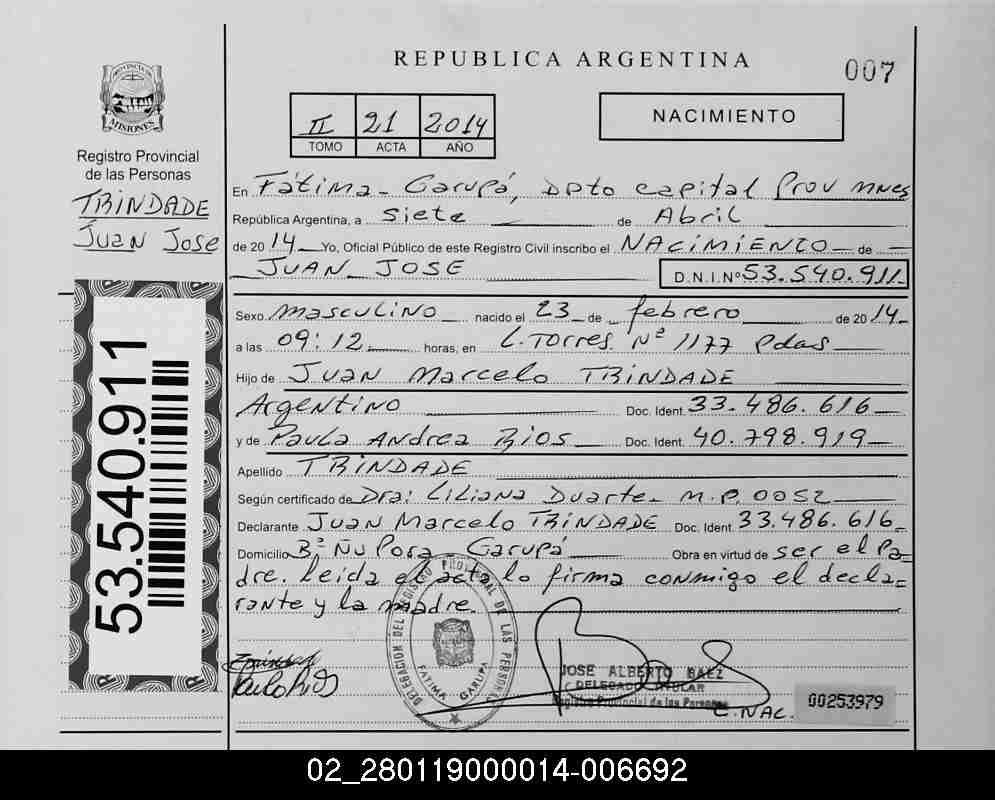 REPUBLICA ARGENTINA
007
PROVINCIA DE
MISIONES
Registro Provincial
de las Personas
TRINDADE
Juan Jose
53.540.911
II 21 2014
TOMO ACTA AÑO
NACIMIENTO
En Fátima - Garupá, Dpto capital Prov mnes
República Argentina, a siete de Abril
de 2014 Yo, Oficial Público de este Registro Civil inscribo el NACIMIENTO de
JUAN JOSE D.N.I.Nº 53.540.911
Sexo masculino nacido el 23 de febrero de 2014
a las 09:12 horas, en L. Torres Nº 1177 Pdas
Hijo de Juan Marcelo TRINDADE
Argentino Doc. Ident. 33.486.616
y de Paula Andrea Rios Doc. Ident. 40.798.919
Apellido TRINDADE
Según certificado de Dra: Liliana Duarte - M.P. 0052
Declarante Juan Marcelo TRINDADE Doc. Ident. 33.486.616
Domicilio Bº Ñu Pora - Garupá Obra en virtud de ser el pa-
dre. Leida el acta lo firma conmigo el decla-
rante y la madre.
DELEGACION DEL REGISTRO PROVINCIAL DE LAS PERSONAS
FATIMA GARUPA
JOSE ALBERTO BAEZ
DELEGADO TITULAR
Registro Provincial de las Personas
C. NAC. 00253979
02_280119000014-006692